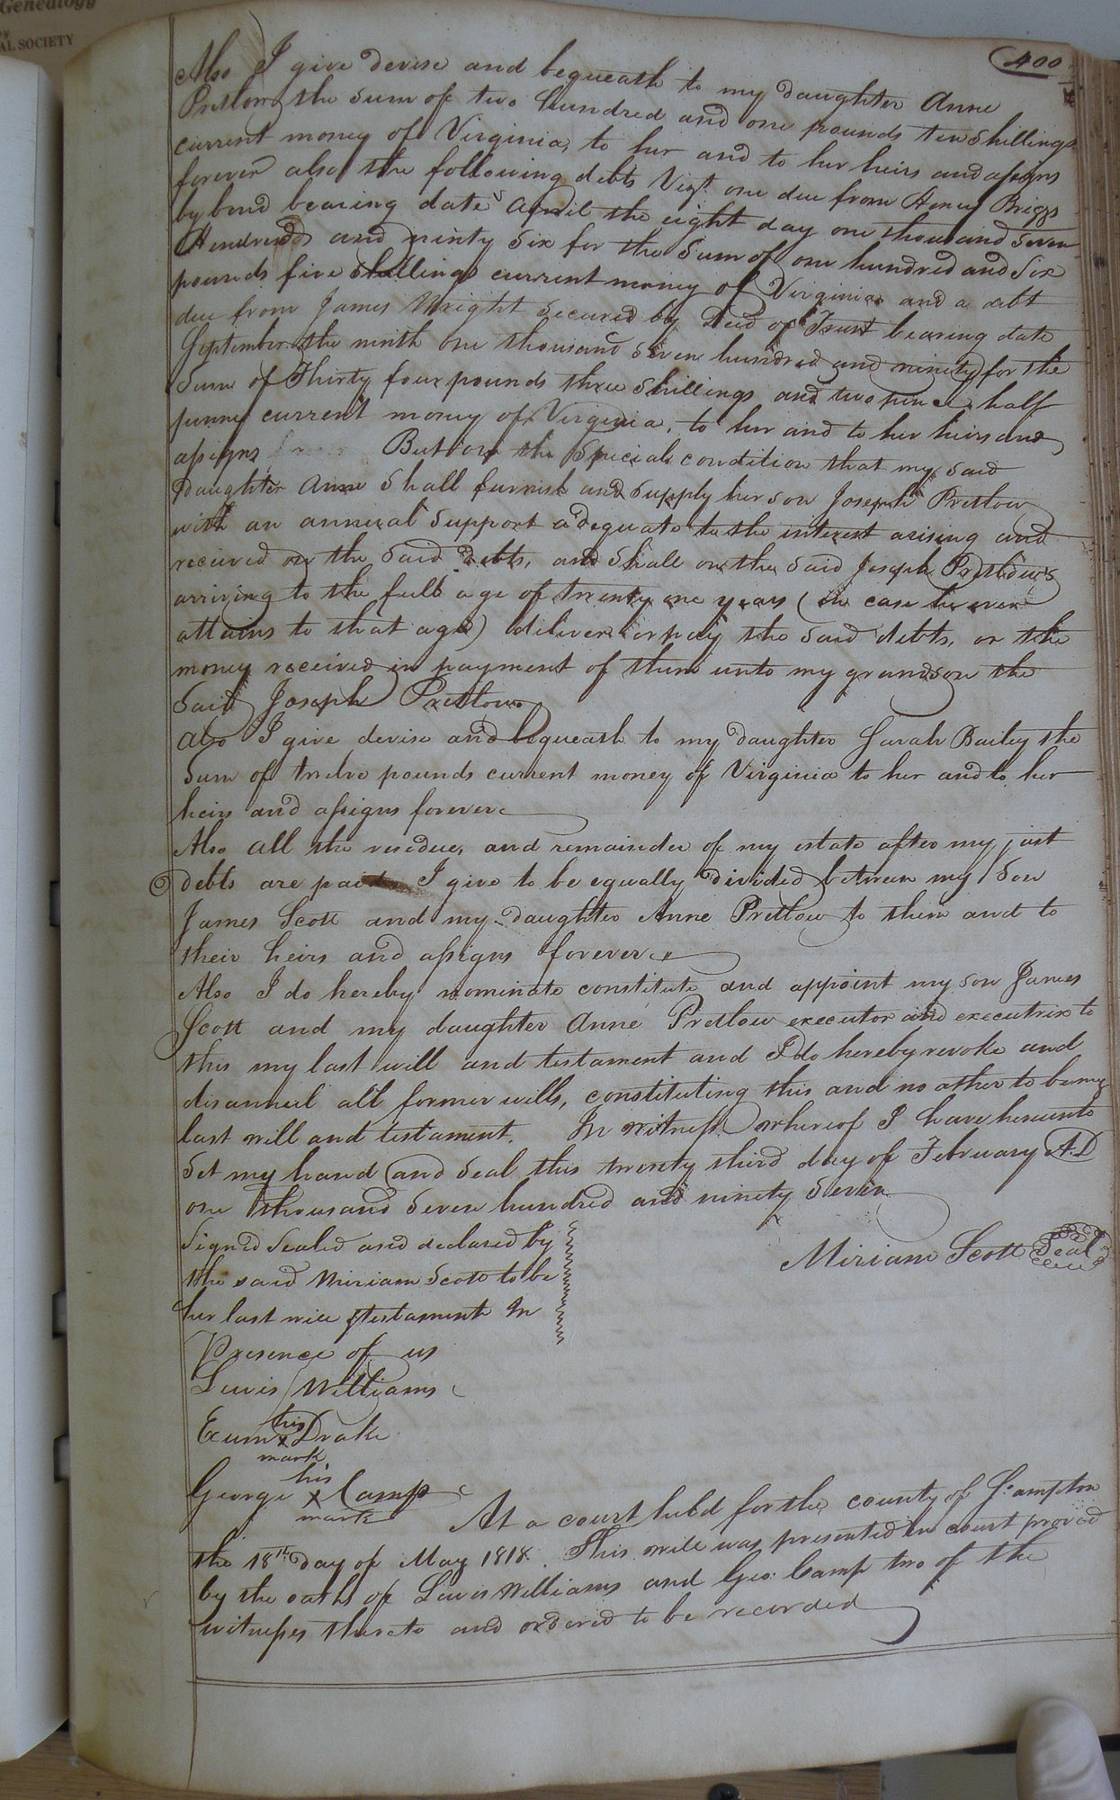 Genealogy
AL SOCIETY
400
Also I give devise and bequeath to my daughter Anne
Pretlow the sum of two hundred and one pounds ten shillings
current money of Virginia, to her and to her heirs and assigns
forever also the following debts Vizt. one due from Henry Briggs
by bond bearing date April the eight day one thousand seven
Hendred and ninty six for the sum of one hundred and six
pounds five shillings current money of Virginia and a debt
due from James Wright secured by Deed of Trust bearing date
September the ninth one thousand seven hundred and ninety for the
sum of Thirty four pounds three shillings and two pence half
penny current money of Virginia, to her and to her heirs and
assigns But on the special condition that my said
daughter Anne shall furnish and supply her son Joseph Pretlow
with an annual support adequate to the interest arising and
received on the said debts, and shall on the said Joseph Pretlow's
arriving to the full age of twenty one years (in case he ever
attains to that age) deliver or pay the said debts, or the
money received in payment of them unto my grandson the
said Joseph Pretlow
also I give devise and bequeath to my daughter Sarah Bailey the
sum of twelve pounds current money of Virginia to her and to her
heirs and assigns forever
Also all the residue, and remainder of my estate after my just
debts are paid I give to be equally divided between my son
James Scott and my daughter Anne Pretlow to them and to
their heirs and assigns forever
Also I do hereby nominate constitute and appoint my son James
Scott and my daughter Anne Pretlow executor and executrix to
this my last will and testament and I do hereby revoke and
disannul all former wills, constituting this and no other to be my
last will and testament. In witness whereof I have hereunto
set my hand and seal this twenty third day of February A.D
one thousand seven hundred and ninety seven
Signed sealed and declared by
Miriam Scott Seal
the said Miriam Scott to be
her last will & testament In
Presence of us
Lewis Williams
his
Exum x Drake
mark
his
George x Camp
mark
At a court held for the county of S:ampton
the 18th day of May 1818. This will was presented in court proved
by the oaths of Lewis Williams and Geo: Camp two of the
witnesses thereto and ordered to be recorded